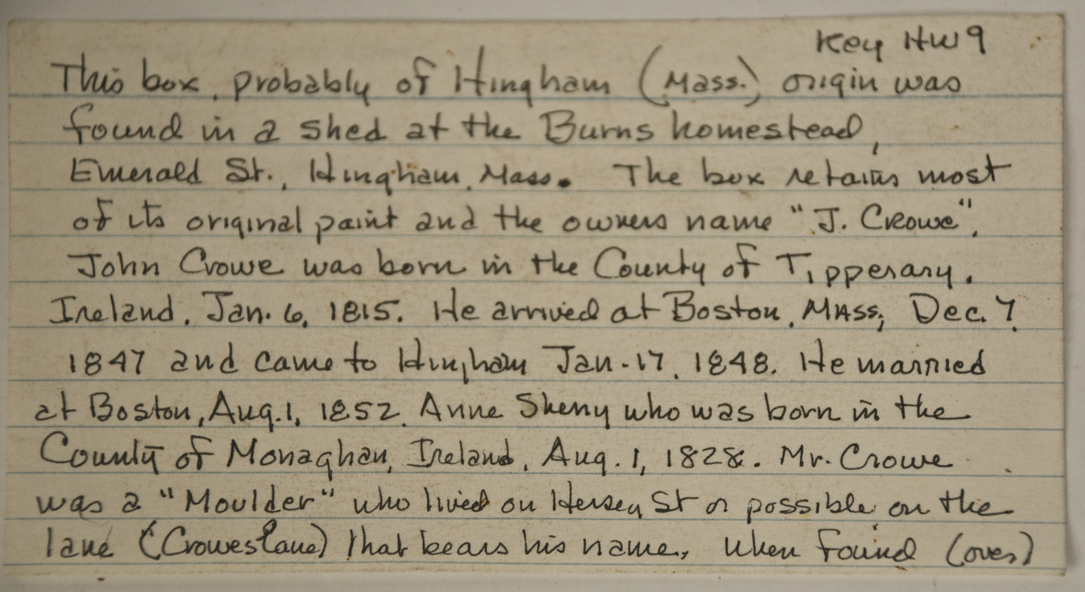 Key HW9
This box, probably of Hingham (Mass.) origin was
found in a shed at the Burns homestead,
Emerald St., Hingham, Mass. The box retains most
of its original paint and the owners name "J. Crowe".
John Crowe was born in the County of Tipperary,
Ireland, Jan. 6, 1815. He arrived at Boston, Mass, Dec. 7,
1847 and came to Hingham Jan. 17, 1848. He married
at Boston, Aug. 1, 1852, Anne who was born in the
County of Monaghan, Ireland, Aug. 1, 1828. Mr. Crowe
was a "Moulder" who lived on Hersey St or possible on the
lane (Crowes Lane) that bears his name, when found (over)